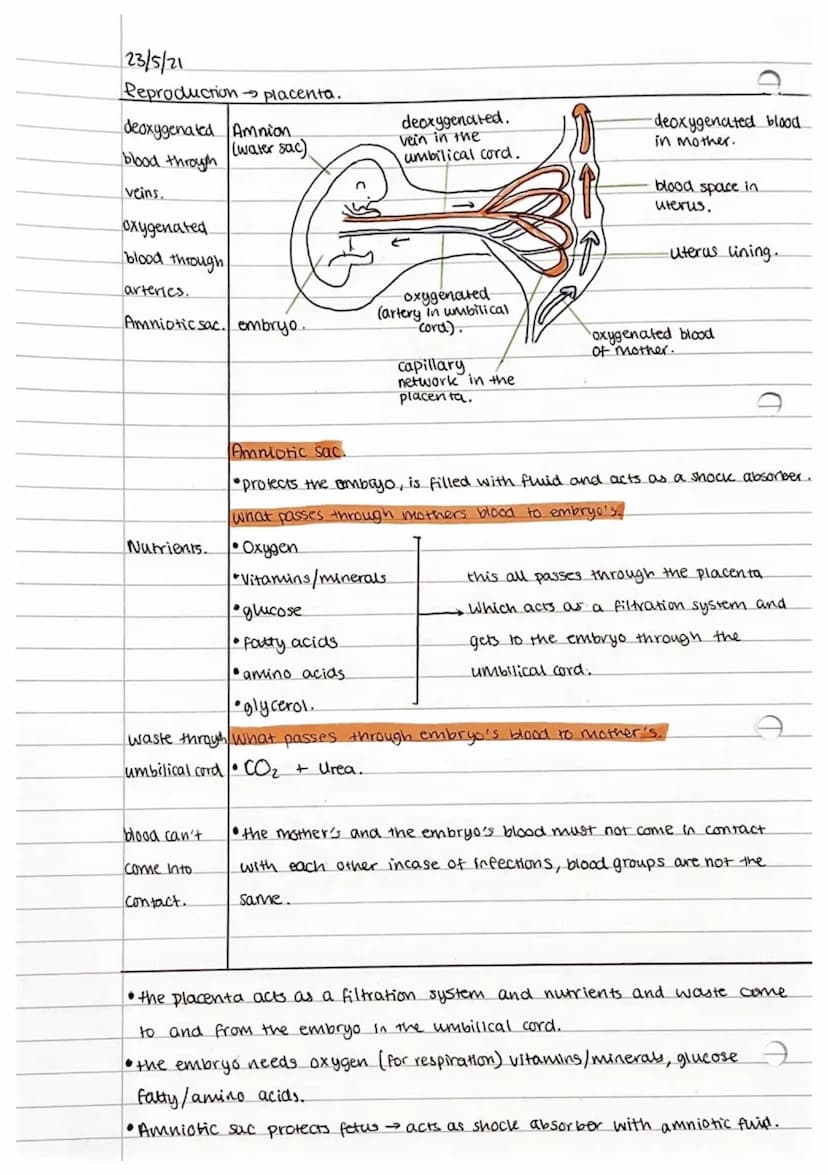 23/5/21
Reproduction → placenta.
deoxygenated
blood through
veins.
oxygenated
blood through
arteries.
Amniotic sac.
Amnion
(water sac)
deoxygenated.
vein in the
umbilical cord.
deoxygenated blood
in mother.
blood space in
uterus.
uterus lining.
oxygenated blood
of mother.
embryo.
oxygenated
(artery in umbilical
cord).
capillary
network in the
placenta.
Amniotic sac.
•protects the embryo, is filled with fluid and acts as a shock absorber.
what passes through mothers blood to embryo's.
Nutrients.
• Oxygen
•Vitamins/minerals
•glucose
• fatty acids
•amino acids
•glycerol.
this all passes through the placenta
which acts as a filtration system and
gets to the embryo through the
umbilical cord.
waste through
umbilical cord
what passes through embryo's blood to mother's.
• CO₂ + Urea.
blood can't
come into
contact.
•the mother's and the embryo's blood must not come in contact
with each other incase of infections, blood groups are not the
same.
•the placenta acts as a filtration system and nutrients and waste come
to and from the embryo in the umbilical cord.
•the embryo needs oxygen (for respiration) vitamins/minerals, glucose
fatty/amino acids.
•Amniotic sac protects fetus → acts as shock absorber with amniotic fluid.